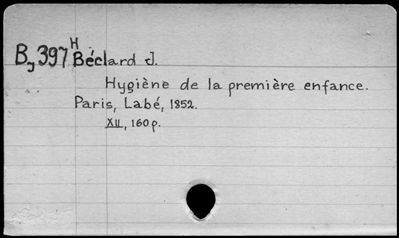 B, 397 H Béclard J.
Hygiène de la première enfance.
Paris, Labé, 1852.
XII, 160 p.